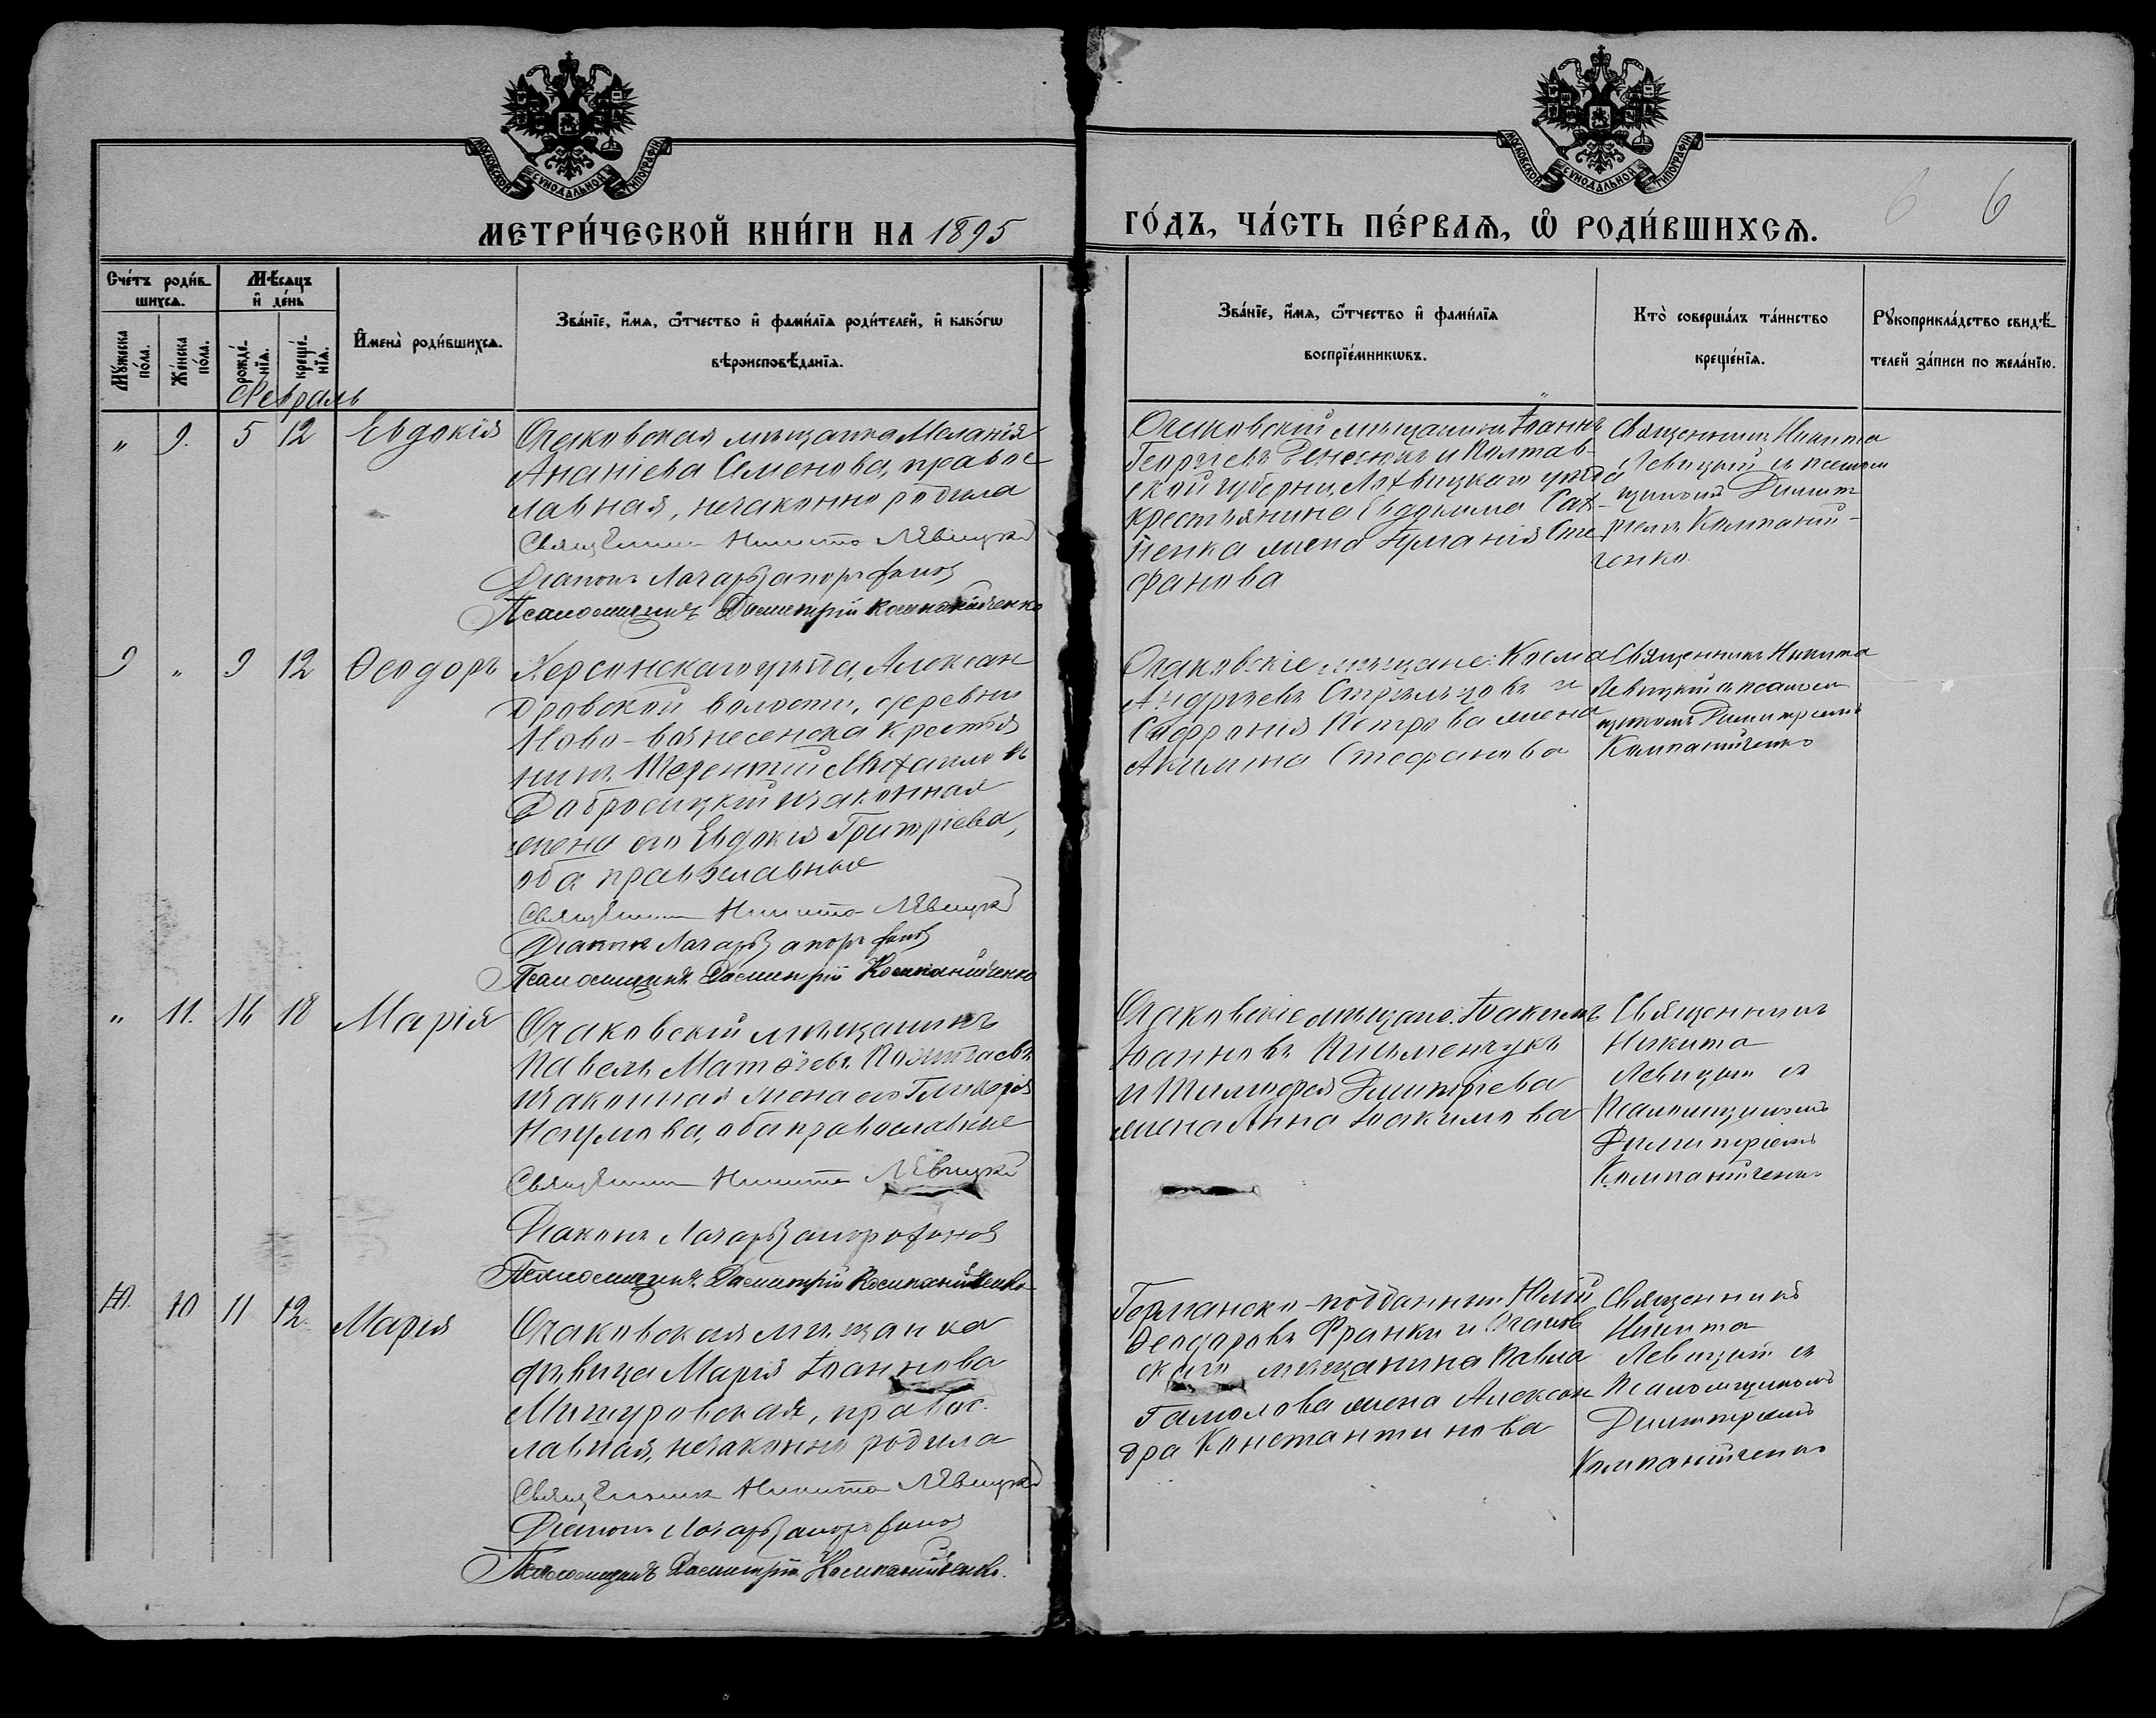 МОСКОВСКОЙ СУНОДАЛЬНОЙ ТИПОГРАФІИ
МОСКОВСКОЙ СУНОДАЛЬНОЙ ТИПОГРАФІИ
МЕТРИ́ЧЕСКОЙ КНИ́ГИ НА 1895
ГО́ДЪ, ЧА́СТЬ ПЕ́РВАѦ, Ѽ РОДИ́ВШИХСѦ.
6 6
Сче́тъ роди́в-
шихсѧ.
Мѣсѧцъ
и҆ де́нь
Мꙋжеска
по́ла.
Же́нска
по́ла.
рожде́-
нїѧ.
креще́-
нїѧ.
И҆мена̀ роди́вшихсѧ.
Зва́нїе, и҆́мѧ, ѻ҆́тчество и҆ фами́лїѧ роди́телей, и҆ како́гѡ
вѣроисповѣ́данїѧ.
Зва́нїе, и҆́мѧ, ѻ҆́тчество и҆ фами́лїѧ
воспрїе́мникѡвъ.
Кто̀ соверша́лъ та́инство
креще́нїѧ.
Рꙋкоприкла́дство свидѣ́-
телей за́писи по жела́нїю.
Февраль
„ 9. 5 12 Евдокія
Очаковская мѣщанка Меланія
Ананіева Семенова, правос
лавная, незаконно родила
Священникъ Никита Лѣвицкій
Діаконъ Лазарь
Псаломщикъ Димитрій Компанійченко
Очаковскій мѣщанинъ Іоаннъ
Георгіевъ и Полтав-
ской губерніи, Лохвицкаго уѣзда
крестьянина Евдокима
жена Сте
фанова
Священникъ Никита
Левицкій съ псалом
щикомъ Димит
ріемъ Компаній-
ченко.
9 „ 9 12 Ѳеодоръ
Херсонскаго уѣзда, Алексан
дровской волости, деревни
Ново-вознесенска крестья
нинъ Терентій Михаиловъ
и законная
жена его Евдокія
оба православные
Священникъ Никита Лѣвицкій
Діаконъ Лазарь
Псаломщикъ Димитрій Компанійченко
Очаковскіе мѣщане: Косма
Андреевъ Стрѣльцовъ и
Софронія Петрова жена
Акилина Стефанова
Священникъ Никита
Левицкій съ псалом
щикомъ Димитріемъ
Компанійченко
„ 11. 16 18 Марія
Очаковскій мѣщанинъ
Павелъ Матѳеевъ
и законная жена его Гликерія
Наумова, оба православные
Священникъ Никита Лѣвицкій
Діаконъ Лазарь
Псаломщикъ Димитрій Компанійченко
Очаковскіе мѣщане: Іоакимъ
Іоанновъ Письменчукъ
и Тимоѳея Димитріева
жена Анна Іоакимова
Священникъ
Никита
Левицкій съ
Псаломщикомъ
Димитріемъ
Компанійченко
10 11 12 Марія
Очаковская мѣщанка
дѣвица Марія Іоаннова
правос-
лавная, незаконно родила
Священникъ Никита Лѣвицкій
Діаконъ Лазарь
Псаломщикъ Димитрій Компанійченко.
Германско-подданный Юлій
Ѳеодоровъ Франки и Очаков
скаго мѣщанина Павла
Гамолова жена Алексан
дра Константинова
Священникъ
Никита
Левицкій съ
Псаломщикомъ
Димитріемъ
Компанійченко